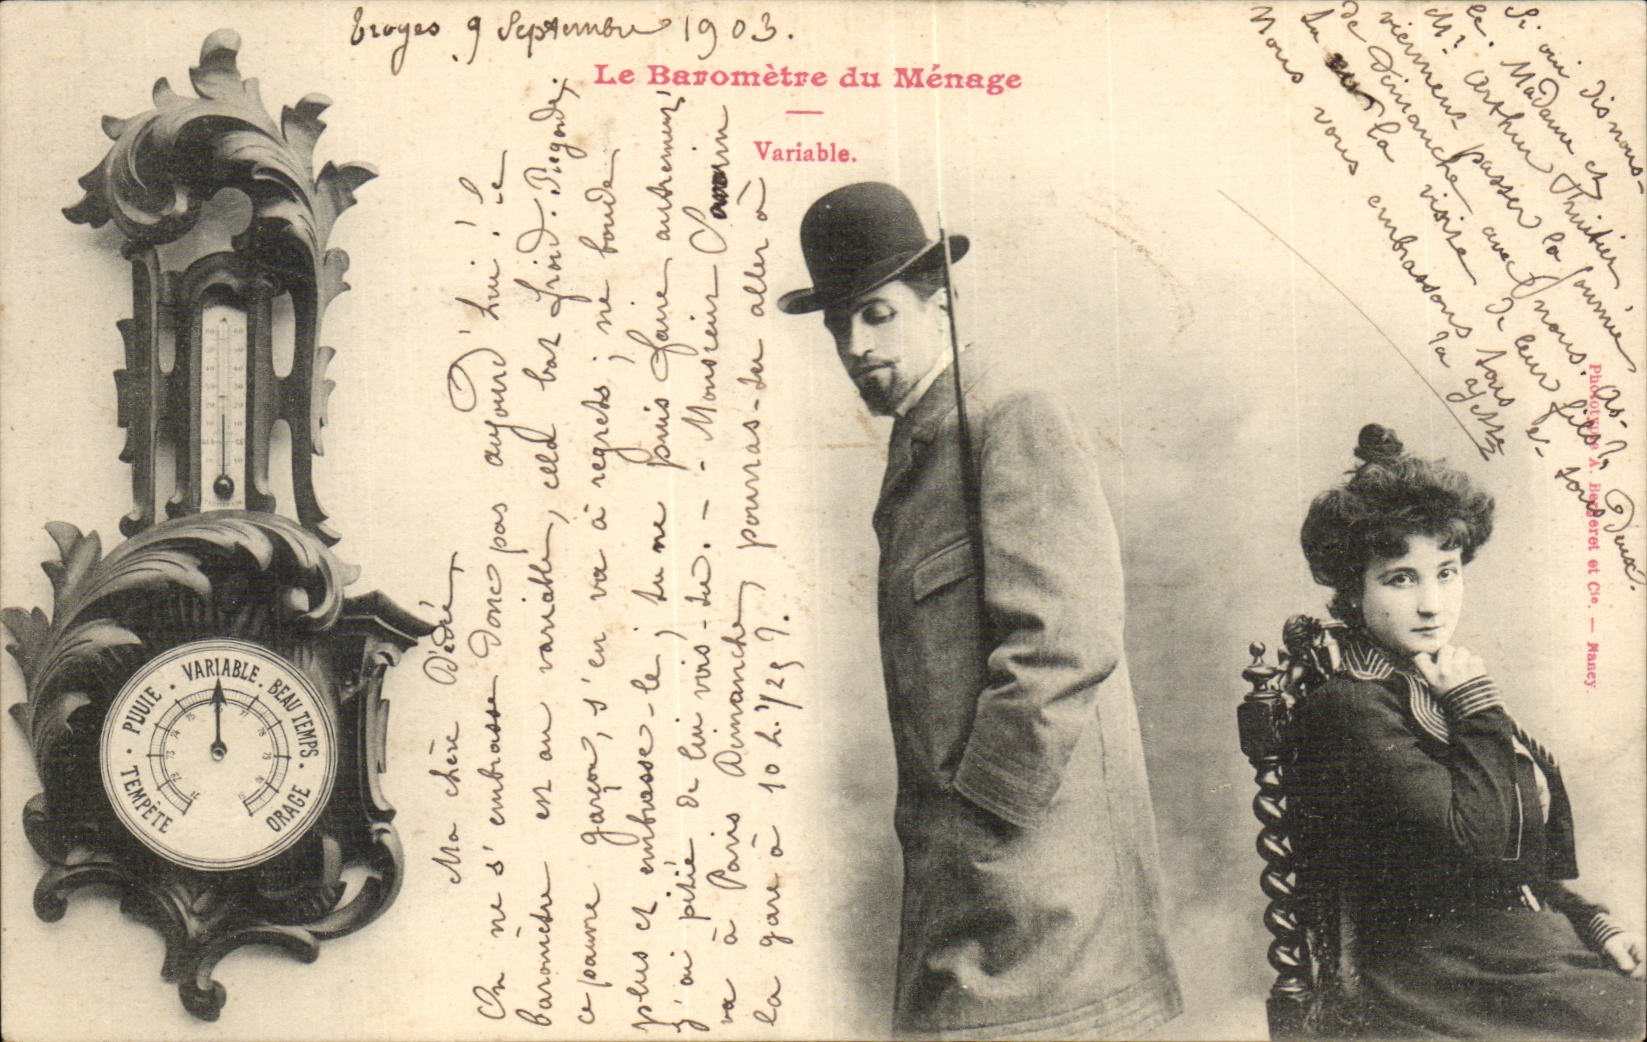 Troyes 9 Septembre 1903.
Le Baromètre du Ménage
Variable.
Ma chère Dédé,
On ne s'embrasse donc pas aujourd'hui! Le
baromètre est au variable, cela bat froid. Regarde,
ce pauvre garçon, s'en va à regrets; ne boude
plus et embrasse-le; tu ne puis faire autrement,
j'ai pitié de lui vois-tu. - - Monsieur
va à Paris Dimanche, pourras-tu aller à
la gare à 10 h. 1/2 S ?.
Si oui dis-nous-
le. Madame et
Mr. Arthur Thuitier
viennent passer la journée
de Dimanche avec nous. As-
tu la visite de leur fils?
Nous vous embrassons tous
Deux.
TEMPÊTE · PLUIE · VARIABLE. BEAU TEMPS. ORAGE
Phototypie A. Bergeret et Cie. — Nancy.